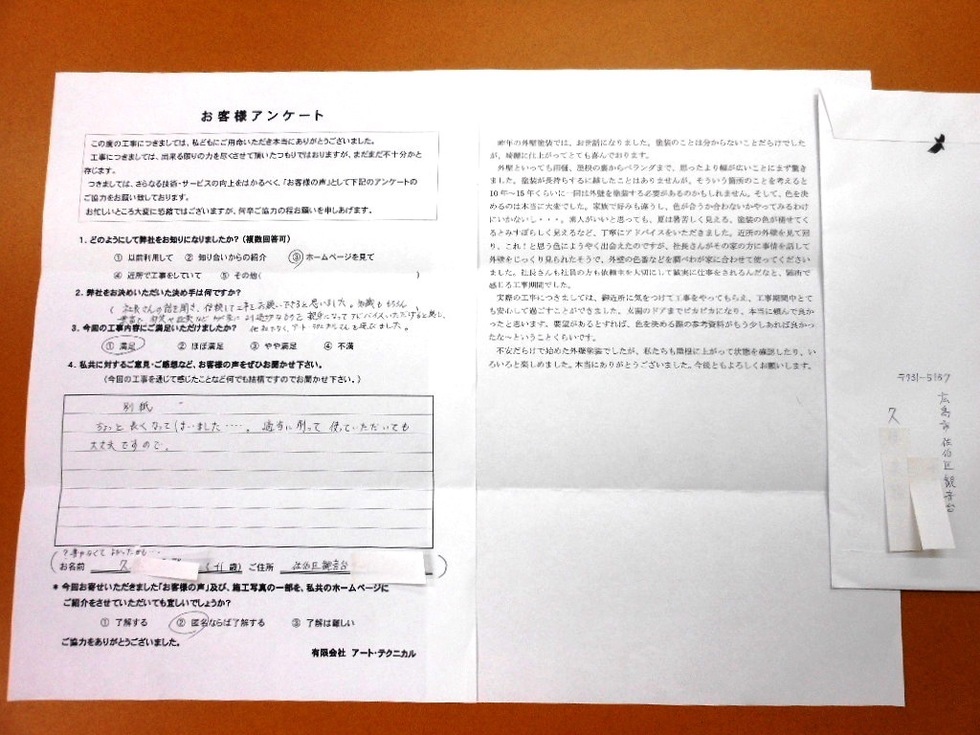 お客様アンケート
この度の工事につきましては、私どもにご用命いただき本当にありがとうございました。
工事につきましては、出来る限りの力を尽くさせて頂いたつもりではおりますが、まだまだ不十分かと
存じます。
つきましては、さらなる技術・サービスの向上をはかるべく、「お客様の声」として下記のアンケートの
ご協力をお願い致しております。
お忙しいところ大変に恐縮ではございますが、何卒ご協力の程お願いを申しあげます。
1. どのようにして弊社をお知りになりましたか？(複数回答可)
① 以前利用して ② 知り合いからの紹介 ③ ホームページを見て
④ 近所で工事をしていて ⑤ その他( )
2. 弊社をお決めいただいた決め手は何ですか？
( 社長さんの話を聞き、信頼して工事をお願いできると思いました。知識ももちろん
3. 今回の工事内容にご満足いただけましたか？
① 満足 ② ほぼ満足 ③ やや満足 ④ 不満
4. 私共に対するご意見・ご感想など、お客様の声をぜひお聞かせ下さい。
(今回の工事を通じて感じたことなど何でも結構ですのでお聞かせ下さい。)
別紙
ちょっと長くなってしまいました……。適当に削って使っていただいても
大丈夫ですので。
お名前 久 歳) ご住所 佐伯区観音台
* 今回お寄せいただきました「お客様の声」及び、施工写真の一部を、私共のホームページに
ご紹介をさせていただいても宜しいでしょうか？
① 了解する ② 匿名ならば了解する ③ 了解は難しい
ご協力をありがとうございました。
有限会社 アート・テクニカル
昨年の外壁塗装では、お世話になりました。塗装のことは分からないことだらけでした
が、綺麗に仕上がってとても喜んでおります。
外壁といっても雨樋、屋根の裏からベランダまで、思ったより幅が広いことにまず驚き
ました。塗装が長持ちするに越したことはありませんが、そういう箇所のことを考えると
10年～15年くらいに一回は外壁を塗装する必要があるのかもしれません。そして、色を決
めるのは本当に大変でした。家族で好みも違うし、色が合うか合わないかやってみるわけ
にいかないし・・・。素人がいいと思っても、夏は暑苦しく見える、塗装の色が褪せてく
るとみすぼらしく見えるなど、丁寧にアドバイスをいただきました。近所の外壁を見て回
り、これ！と思う色にようやく出会えたのですが、社長さんがその家の方に事情を話して
外壁をじっくり見られたそうで、外壁の色番などを調べわが家に合わせて使ってください
ました。社長さんも社員の方も依頼主を大切にして誠実に仕事をされるんだなと、随所で
感じる工事期間でした。
実際の工事につきましては、御近所に気をつけて工事をやってもらえ、工事期間中とて
も安心して過ごすことができました。玄関のドアまでピカピカになり、本当に頼んで良か
ったと思います。要望があるとすれば、色を決める際の参考資料がもう少しあれば良かっ
たな～ということくらいです。
不安だらけで始めた外壁塗装でしたが、私たちも屋根に上がって状態を確認したり、い
ろいろと楽しめました。本当にありがとうございました。今後ともよろしくお願いします。
〒731-5157
広島市佐伯区観音台
久